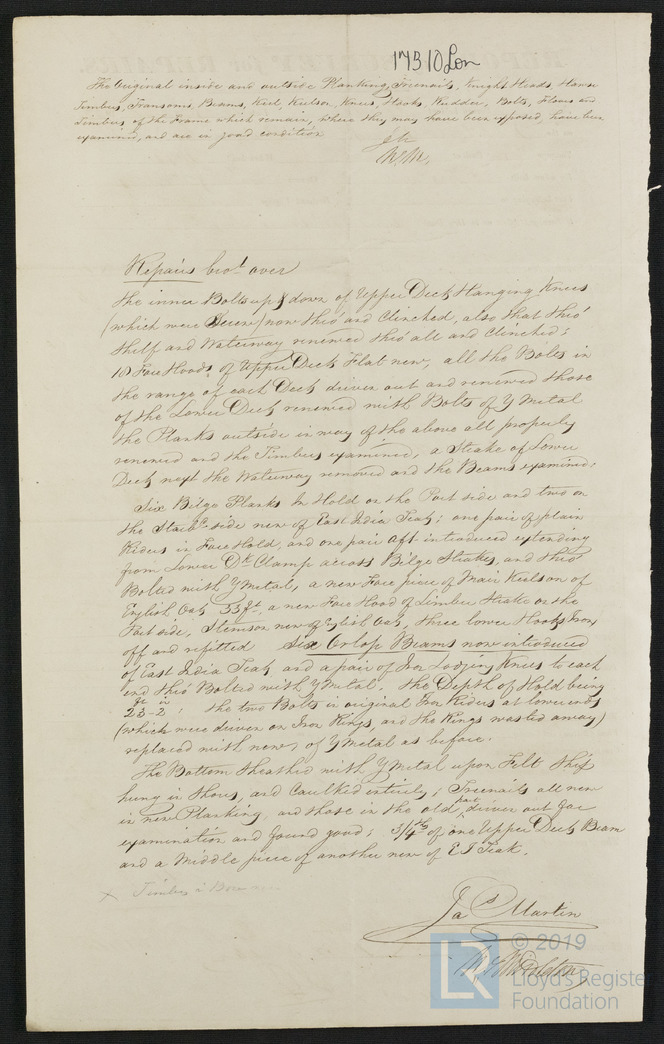 17310 Lon
The Original inside and outside Planking, Treenails, Knight Heads, Hawse
Timbers, Transoms, Beams, Keel, Keelson, Knees, Hooks, Rudder, Bolts, Floors and
Timbers of the Frame which remain, where they may have been exposed, have been
examined, and are in good condition
W.M.
Repairs bro.t over
the inner Bolts up & down of Upper Deck Hanging Knees
(which were Screw) now thro' and Clinched, also that thro'
Shelf and Waterway renewed thro' all and Clinched;
10 Fore Hoods of Upper Deck Flat new, all the Bolts in
the range of each Deck driven out and renewed those
of the Lower Deck renewed with Bolts of Y Metal
the Planks outside in way of the above all properly
renewed and the Timbers examined, a Strake of Lower
Deck next the Waterway removed and the Beams examined;
Six Bilge Planks In Hold on the Port side and two on
the Starb.d side new of East India Teak; one pair of plain
Riders in Fore Hold, and one pair aft introduced extending
from Lower Dk Clamp across Bilge Strakes, and thro'
Bolted with Y Metal, a new Fore piece of Main Keelson of
English Oak 33 f.t, a new Fore Hood of Limber Strake on the
Port side, Stemson new of English Oak, three lower Hooks Iron
off and refitted Six Orlop Beams now introduced
of East India Teak, and a pair of Iron Lodging Knees to each
end thro' Bolted with Y Metal. the Depth of Hold being
ft in
23-2. the two Bolts in original Iron Riders at lower ends
(which were driven on Iron Rings, and the Rings wasted away)
replaced with new, of Y Metal as before.
The Bottom Sheathed with Y Metal upon Felt Ship
hung in Shores, and Caulked entirely; Treenails all new
in new Planking, and those in the old part driven out for
examination and found good; 3/4ths of one Upper Deck Beam
and a Middle piece of another new of E I Teak.
x Timbers
Ja.s Martin
© 2019
LR
Lloyd's Register
Foundation